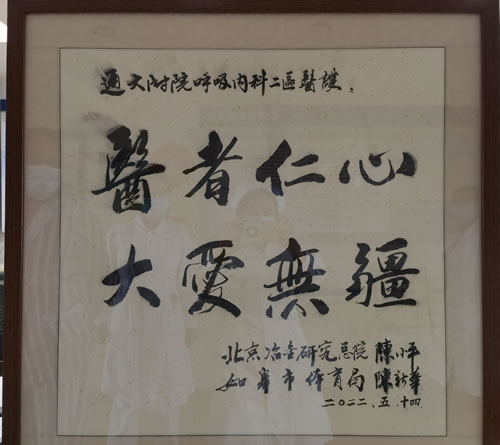 通大附院呼吸内科二區醫護：
醫者仁心
大愛無疆
北京冶金研究总院 陳小平
如皋市体育局 陳新華
二〇二二.五.十四